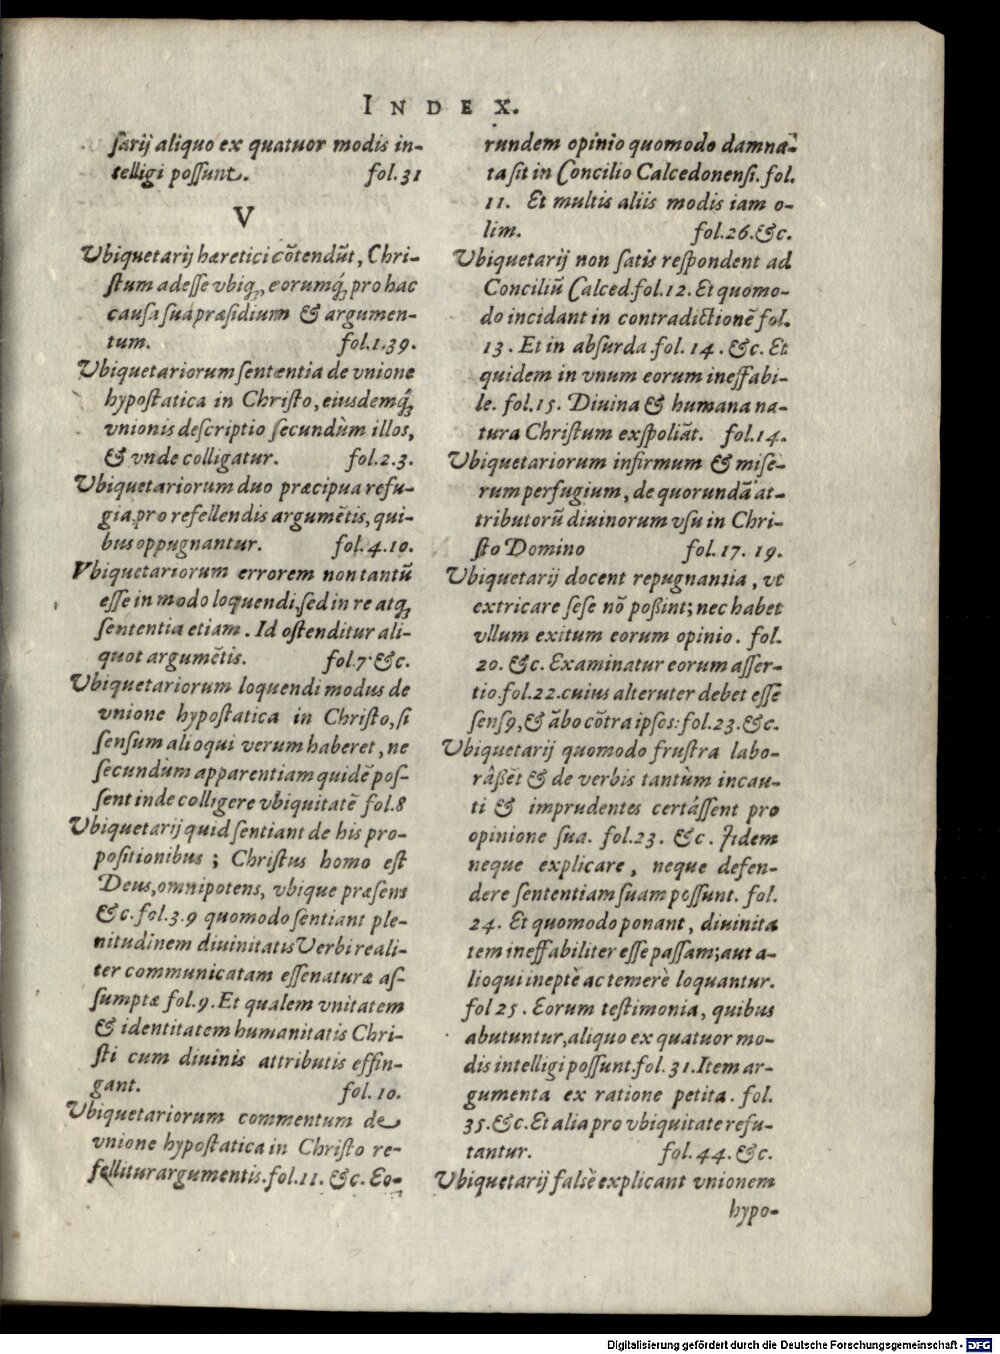 INDEX.
sarij aliquo ex quatuor modis in-
telligi possunt. fol.31
V
Vbiquetarij hæretici cõtendũt, Chri-
stum adesse vbiq;, eorumq́;, pro hac
causa sua præsidium & argumen-
tum. fol.1.39.
Vbiquetariorum sententia de vnione
hypostatica in Christo, eiusdemq́;
vnionis descriptio secundùm illos,
& vnde colligatur. fol.2.3.
Vbiquetariorum duo præcipua refu-
gia, pro refellendis argumẽtis, qui-
bus oppugnantur. fol.4.10.
Vbiquetariorum errorem non tantũ
esse in modo loquendi, sed in re atq;
sententia etiam. Id ostenditur ali-
quot argumẽtis. fol.7.&c.
Vbiquetariorum loquendi modus de
vnione hypostatica in Christo, si
sensum alioqui verum haberet, ne
secundùm apparentiam quidẽ pos-
sent inde colligere vbiquitatẽ fol.8
Vbiquetarij quid sentiant de his pro-
positionibus; Christus homo est
Deus, omnipotens, vbique præsens
&c. fol.3.9 quomodo sentiant ple-
nitudinem diuinitatis Verbi reali-
ter communicatam esse naturæ as-
sumptæ fol.9. Et qualem vnitatem
& identitatem humanitatis Chri-
sti cum diuinis attributis effin-
gant. fol.10.
Vbiquetariorum commentum de
vnione hypostatica in Christo re-
fellitur argumentis. fol.11. &c. Eo-
rundem opinio quomodo damna-
ta sit in Concilio Calcedonensi. fol.
11. Et multis aliis modis iam o-
lim. fol.26.&c.
Vbiquetarij non satis respondent ad
Conciliũ Calced. fol.12. Et quomo-
do incidant in contradictionẽ fol.
13. Et in absurda fol. 14. &c. Et
quidem in vnum eorum ineffabi-
le. fol.15. Diuina & humana na-
tura Christum exspoliãt. fol.14.
Vbiquetariorum infirmum & mise-
rum perfugium, de quorundã at-
tributorũ diuinorum vsu in Chri-
sto Domino fol. 17. 19.
Vbiquetarij docent repugnantia, vt
extricare sese nõ poßint; nec habet
vllum exitum eorum opinio. fol.
20. &c. Examinatur eorum asser-
tio. fol.22. cuius alteruter debet esse
sensꝰ, & ãbo cõtra ipsos: fol.23. &c.
Vbiquetarij quomodo frustra labo-
râßẽt & de verbis tantùm incau-
ti & imprudentes certâssent pro
opinione sua. fol.23. &c. Iidem
neque explicare, neque defen-
dere sententiam suam possunt. fol.
24. Et quomodo ponant, diuinita
tem ineffabiliter esse passam; aut a-
lioqui ineptè ac temerè loquantur.
fol 25. Eorum testimonia, quibus
abutuntur, aliquo ex quatuor mo-
dis intelligi possunt. fol. 31. Item ar-
gumenta ex ratione petita. fol.
35.&c. Et alia pro vbiquitate refu-
tantur. fol.44. &c.
Vbiquetarij falsè explicant vnionem
hypo-
Digitalisierung gefördert durch die Deutsche Forschungsgemeinschaft - DFG